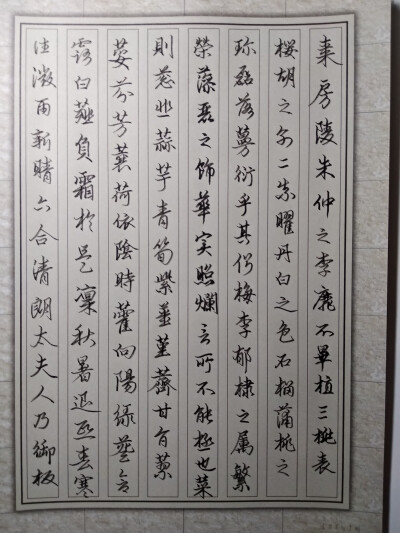 棗房陵朱仲之李靡不畢植三桃表
櫻胡之别二柰曜丹白之色石榴蒲桃之
珍磊落蔓衍乎其側梅李郁棣之属繁
榮藻麗之飾華实照爛言所不能極也菜
則葱韭蒜芋青筍紫薑堇薺甘旨蓼
荽芬芳蘘荷依陰時藿向陽緑葵含
露白薤負霜於是凜秋暑退熙春寒
往微雨新晴六合清朗太夫人乃御板